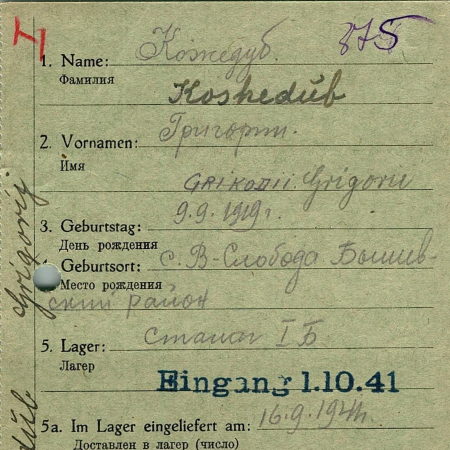 875
1. Name: Кожедуб.
Фамилия
Koshedub
2. Vornamen: Григорий.
Имя
Grigorii
3. Geburtstag: 9.9.1919г.
День рождения
Geburtsort: с. В-Слобода
Место рождения
ский район
5. Lager: Сталаг IБ
Лагер
Eingang 1.10.41
5a. Im Lager eingeliefert am: 16.9.1941
Доставлен в лагер (число)
Grigorij